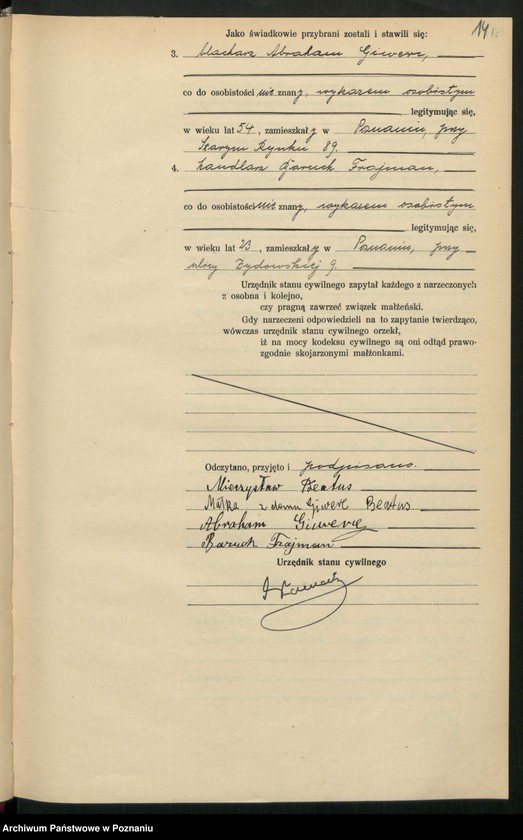 14
Jako świadkowie przybrani zostali i stawili się:
3. blacharz Abraham Giwerc,
co do osobistości nie znany, wykazem osobistym
legitymując się,
w wieku lat 54, zamieszkały w Poznaniu, przy
Starym Rynku 89.
4. handlarz Baruch Frajman,
co do osobistości nie znany, wykazem osobistym
legitymując się,
w wieku lat 23, zamieszkały w Poznaniu, przy
ulicy Żydowskiej 9.
Urzędnik stanu cywilnego zapytał każdego z narzeczonych
z osobna i kolejno,
czy pragną zawrzeć związek małżeński.
Gdy narzeczeni odpowiedzieli na to zapytanie twierdząco,
wówczas urzędnik stanu cywilnego orzekł,
iż na mocy kodeksu cywilnego są oni odtąd prawo-
zgodnie skojarzonymi małżonkami.
Odczytano, przyjęto i podpisano.
Mieczysław Beatus
Małka z domu Giwerc Beatus
Abraham Giwerc
Baruch Frajman
Urzędnik stanu cywilnego
Archiwum Państwowe w Poznaniu